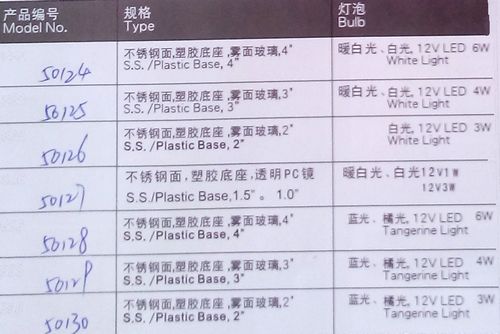 产品编号 规格 灯泡
Model No. Type Bulb
50124 不锈钢面,塑胶底座,雾面玻璃,4" 暖白光、白光,12V LED 6W
S.S./Plastic Base, 4" White Light
50125 不锈钢面,塑胶底座,雾面玻璃,3" 暖白光、白光,12V LED 4W
S.S./Plastic Base, 3" White Light
50126 不锈钢面,塑胶底座,雾面玻璃,2" 白光,12V LED 3W
S.S./Plastic Base, 2" White Light
50127 不锈钢面,塑胶底座,透明PC镜 暖白光、白光12V1W
S.S/Plastic Base,1.5"。 1.0" 12V3W
50128 不锈钢面,塑胶底座,雾面玻璃,4" 蓝光、橘光,12V LED 6W
S.S./Plastic Base, 4" Tangerine Light
50129 不锈钢面,塑胶底座,雾面玻璃,3" 蓝光、橘光,12V LED 4W
S.S./Plastic Base, 3" Tangerine Light
50130 不锈钢面,塑胶底座,雾面玻璃,2" 蓝光、橘光,12V LED 3W
S.S./Plastic Base, 2" Tangerine Light